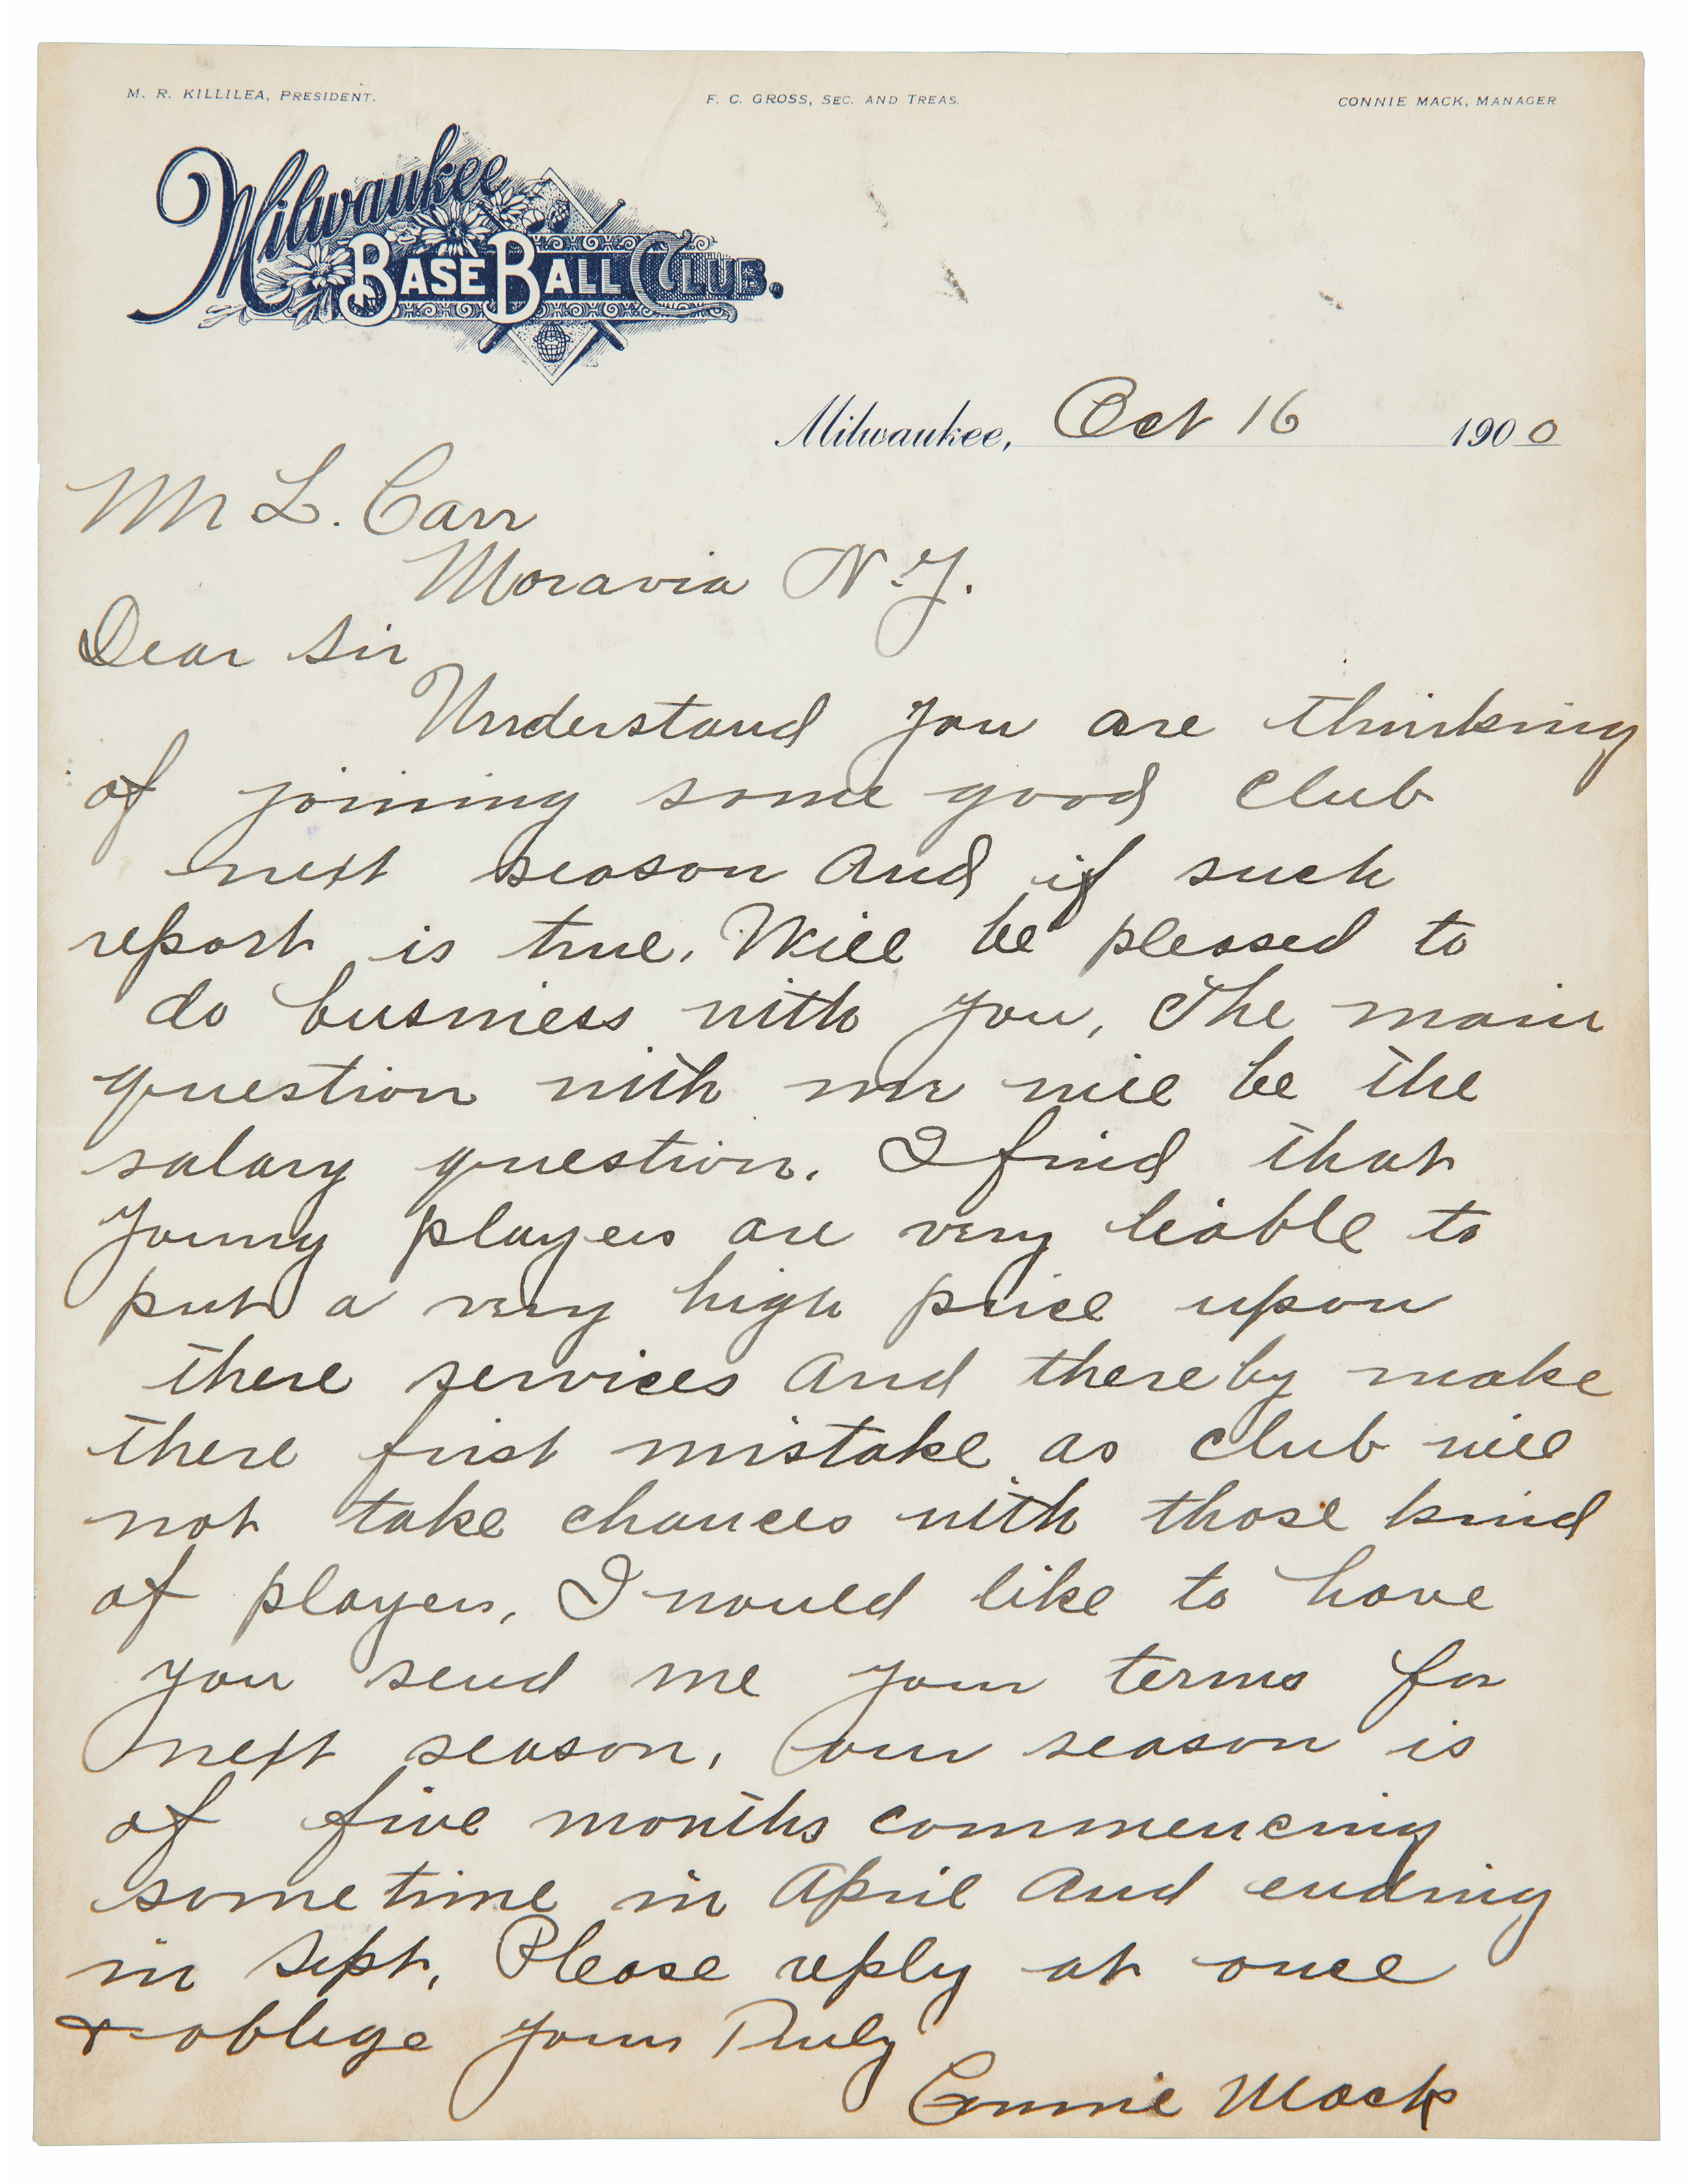 M. R. KILLILEA, PRESIDENT.
F. C. GROSS, SEC. AND TREAS.
CONNIE MACK, MANAGER
Milwaukee
BASE BALL CLUB.
Milwaukee, Oct 16 1900
Mr L. Carr
Moravia N.Y.
Dear Sir
Understand you are thinking
of joining some good club
next season And if such
report is true. Will be pleased to
do business with you, The main
question with me will be the
salary question. I find that
young players are very liable to
put a very high price upon
there services And thereby make
there first mistake as club will
not take chances with those kind
of players, I would like to have
you send me your terms for
next season, Our season is
of five months commencing
sometime in April And ending
in Sept, Please reply at once
& oblige Yours Truly
Connie Mack